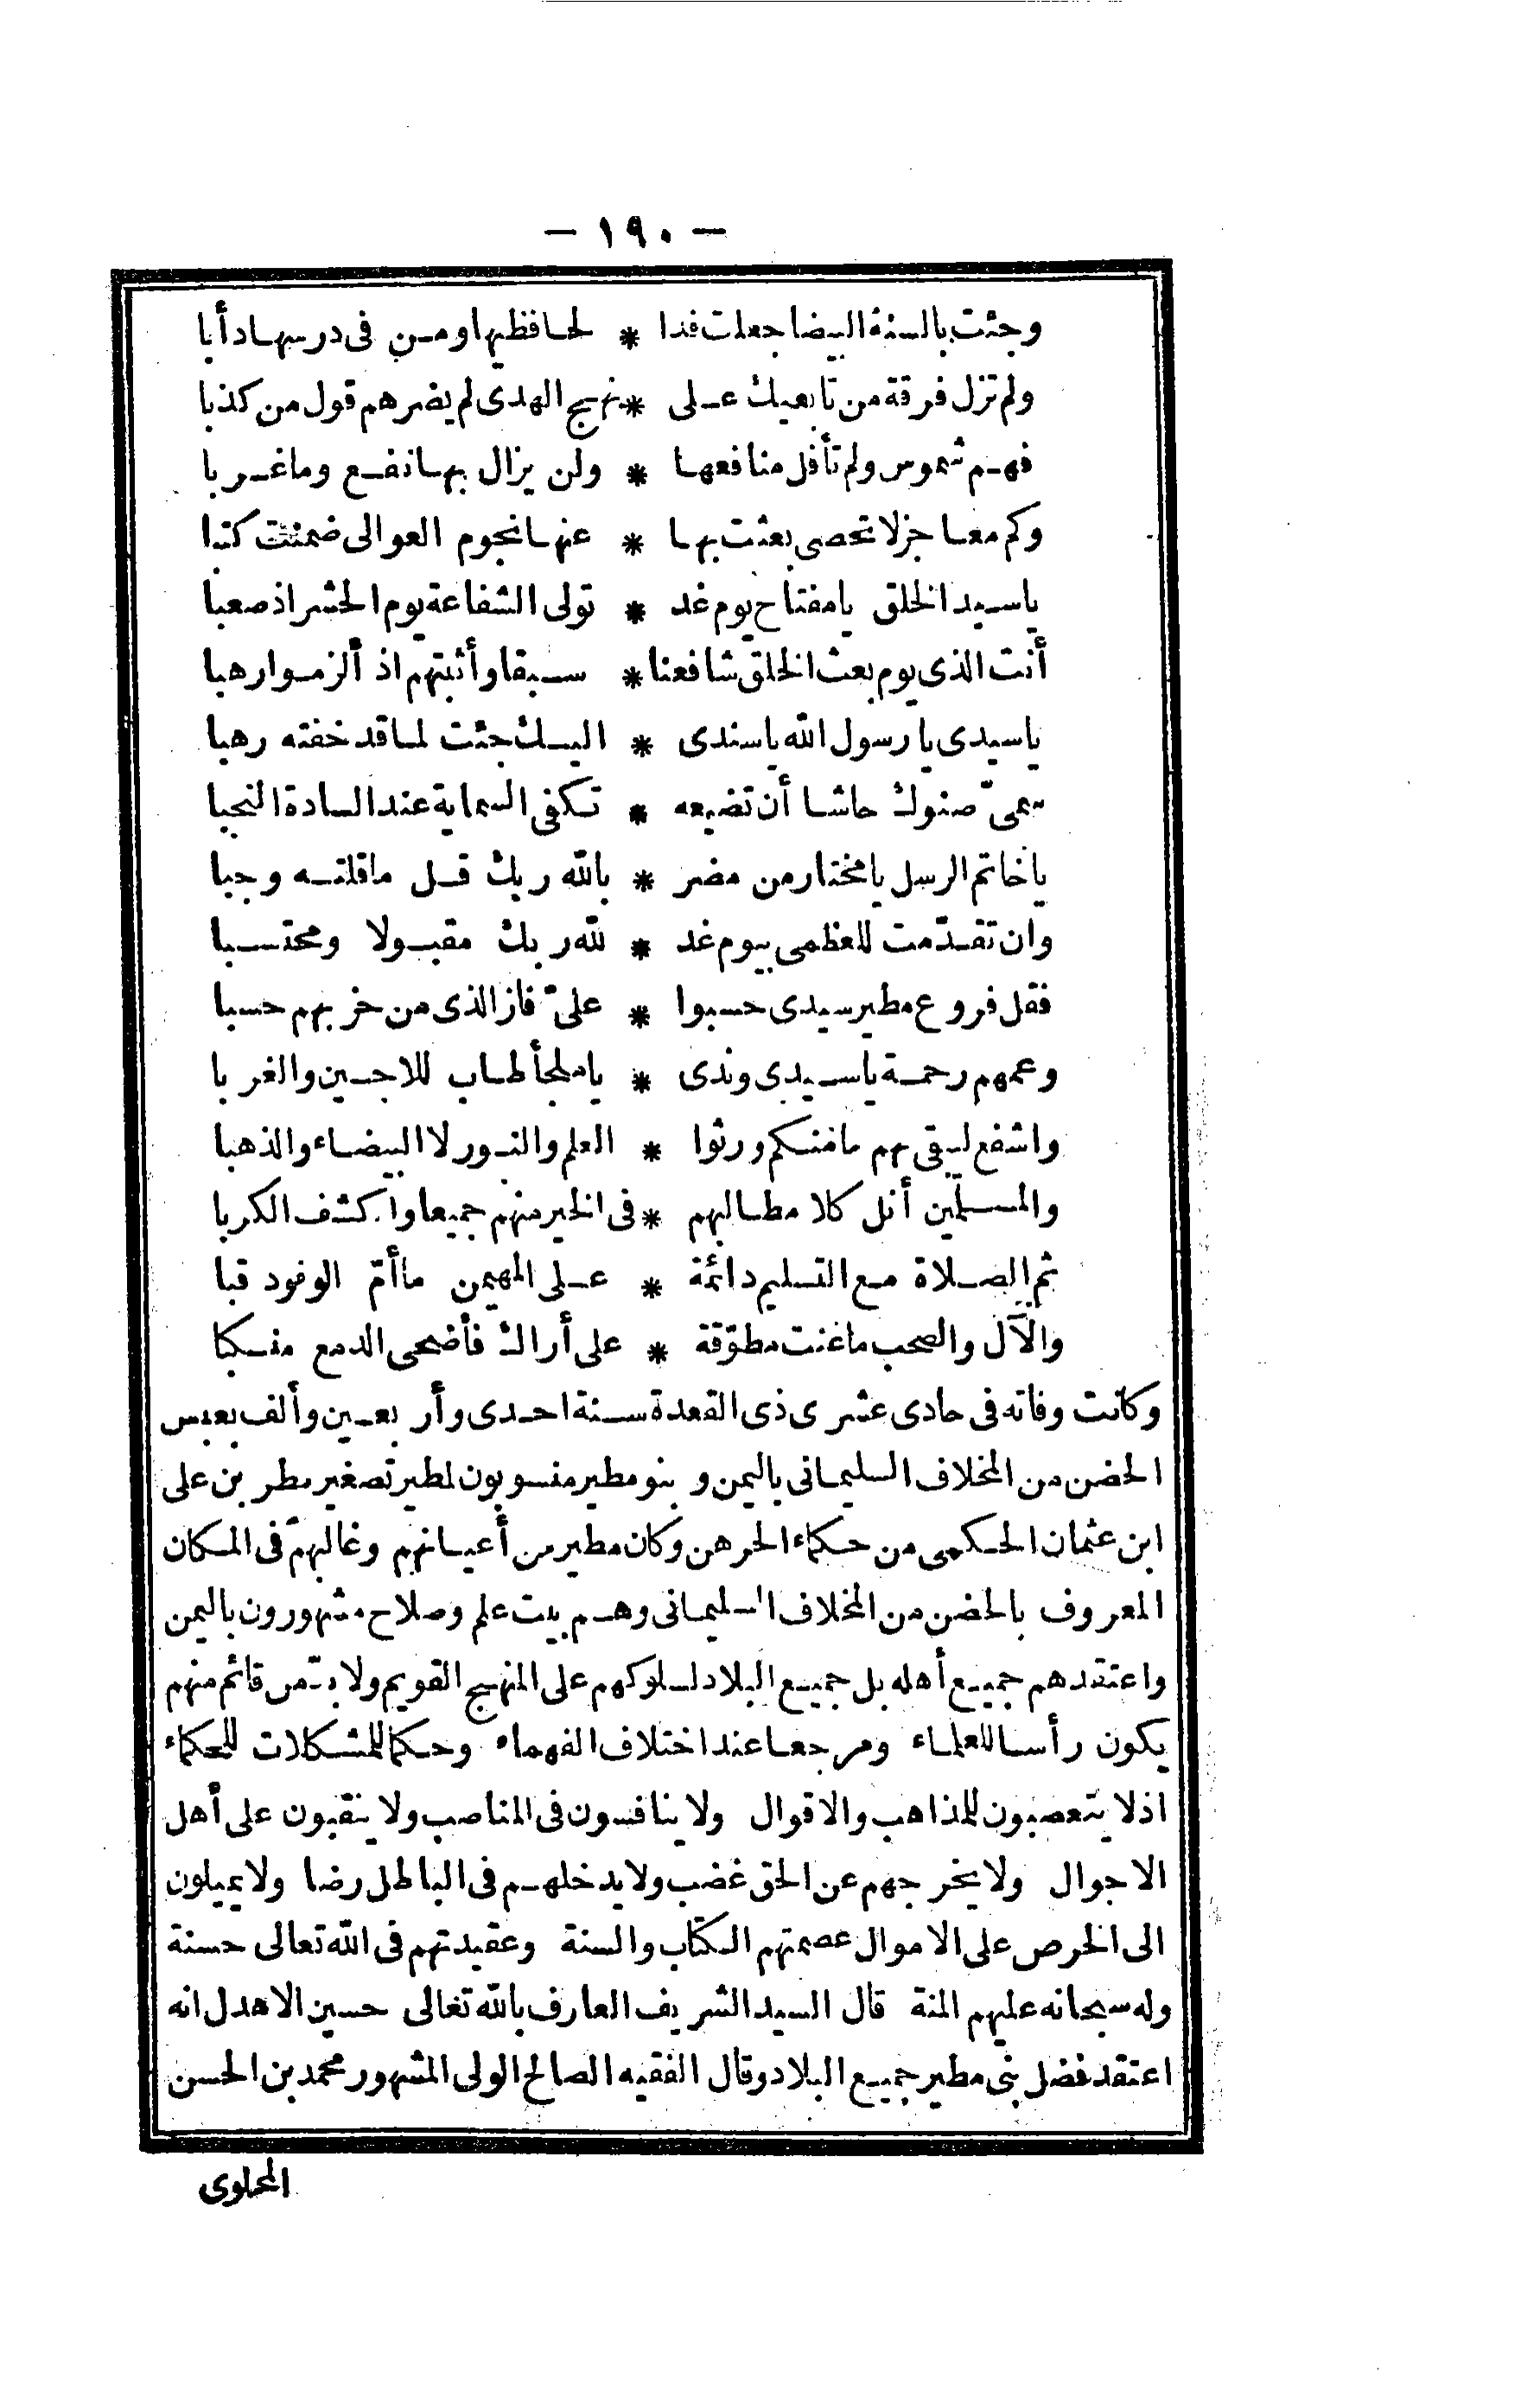 — ١٩٠ —
وجئت بالسنة البيضا جعلت فدا * لحافظيها ومن فى درسها دأبا
ولم تزل فرقة من تابعيك على * نهج الهدى لم يضرهم قول من كذبا
فهم شموس ولم تأفل منافعها * ولن يزال بها نفع وما غربا
وكم معاجز لا تحصى بعثت بها * عنها نجوم العوالى ضمنت كتبا
ياسيد الخلق يا مفتاح يوم غد * تولى الشفاعة يوم الحشر اذ صعبا
أنت الذى يوم بعث الخلق شافعنا * سبقا وأثبتهم اذ ألزموا رهبا
ياسيدى يا رسول الله يا سندى * اليك جئت لما قد خفته رهبا
سمىّ صنوك حاشا أن تضيعه * تكفى السماية عند السادة النجبا
يا خاتم الرسل يا مختار من مضر * بالله ربك قل ما قلته وجبا
وان تقدّمت للعظمى بيوم غد * لله ربك مقبولا ومحتسبا
فقل فروع مطير سيدى حسبوا * علىّ فاز الذى من حزبهم حسبا
وعمهم رحمة يا سيدى وندى * يا ملجأ طاب للاجين والغربا
واشفع ليبقى بهم ما منكم ورثوا * العلم والنور لا البيضاء والذهبا
والمسلمين أنل كلا مطالبهم * فى الخير منهم جميعا واكشف الكربا
ثم الصلاة مع التسليم دائمة * على المهيمن ما أمّ الوفود قبا
والآل والصحب ما غنت مطوّقة * على أراك فأضحى الدمع منسكبا
وكانت وفاته فى حادى عشرى ذى القعدة سنة احدى وأربعين وألف بعبس
الحضن من المخلاف السليمانى باليمن وبنو مطير منسوبون لمطير تصغير مطر بن على
ابن عثمان الحكمى من حكماء الحرهن وكان مطير من أعيانهم وغالبهم فى المكان
المعروف بالحضن من المخلاف السليمانى وهم بيت علم وصلاح مشهورون باليمن
واعتقدهم جميع أهله بل جميع البلاد لسلوكهم على المنهج القويم ولا بدّ من قائم منهم
يكون رأسا للعلماء ومرجعا عند اختلاف الفهماء وحكما للمشكلات للحكماء
اذ لا يتعصبون للمذاهب والاقوال ولا ينافسون فى المناصب ولا ينقبون على أهل
الاجوال ولا يخرجهم عن الحق غضب ولا يدخلهم فى الباطل رضا ولا يميلون
الى الحرص على الاموال عصمتهم الكتاب والسنة وعقيدتهم فى الله تعالى حسنة
وله سبحانه عليهم المنة قال السيد الشريف العارف بالله تعالى حسين الاهدل انه
اعتقد فضل بنى مطير جميع البلاد وقال الفقيه الصالح الولى المشهور محمد بن الحسن
المحلوى